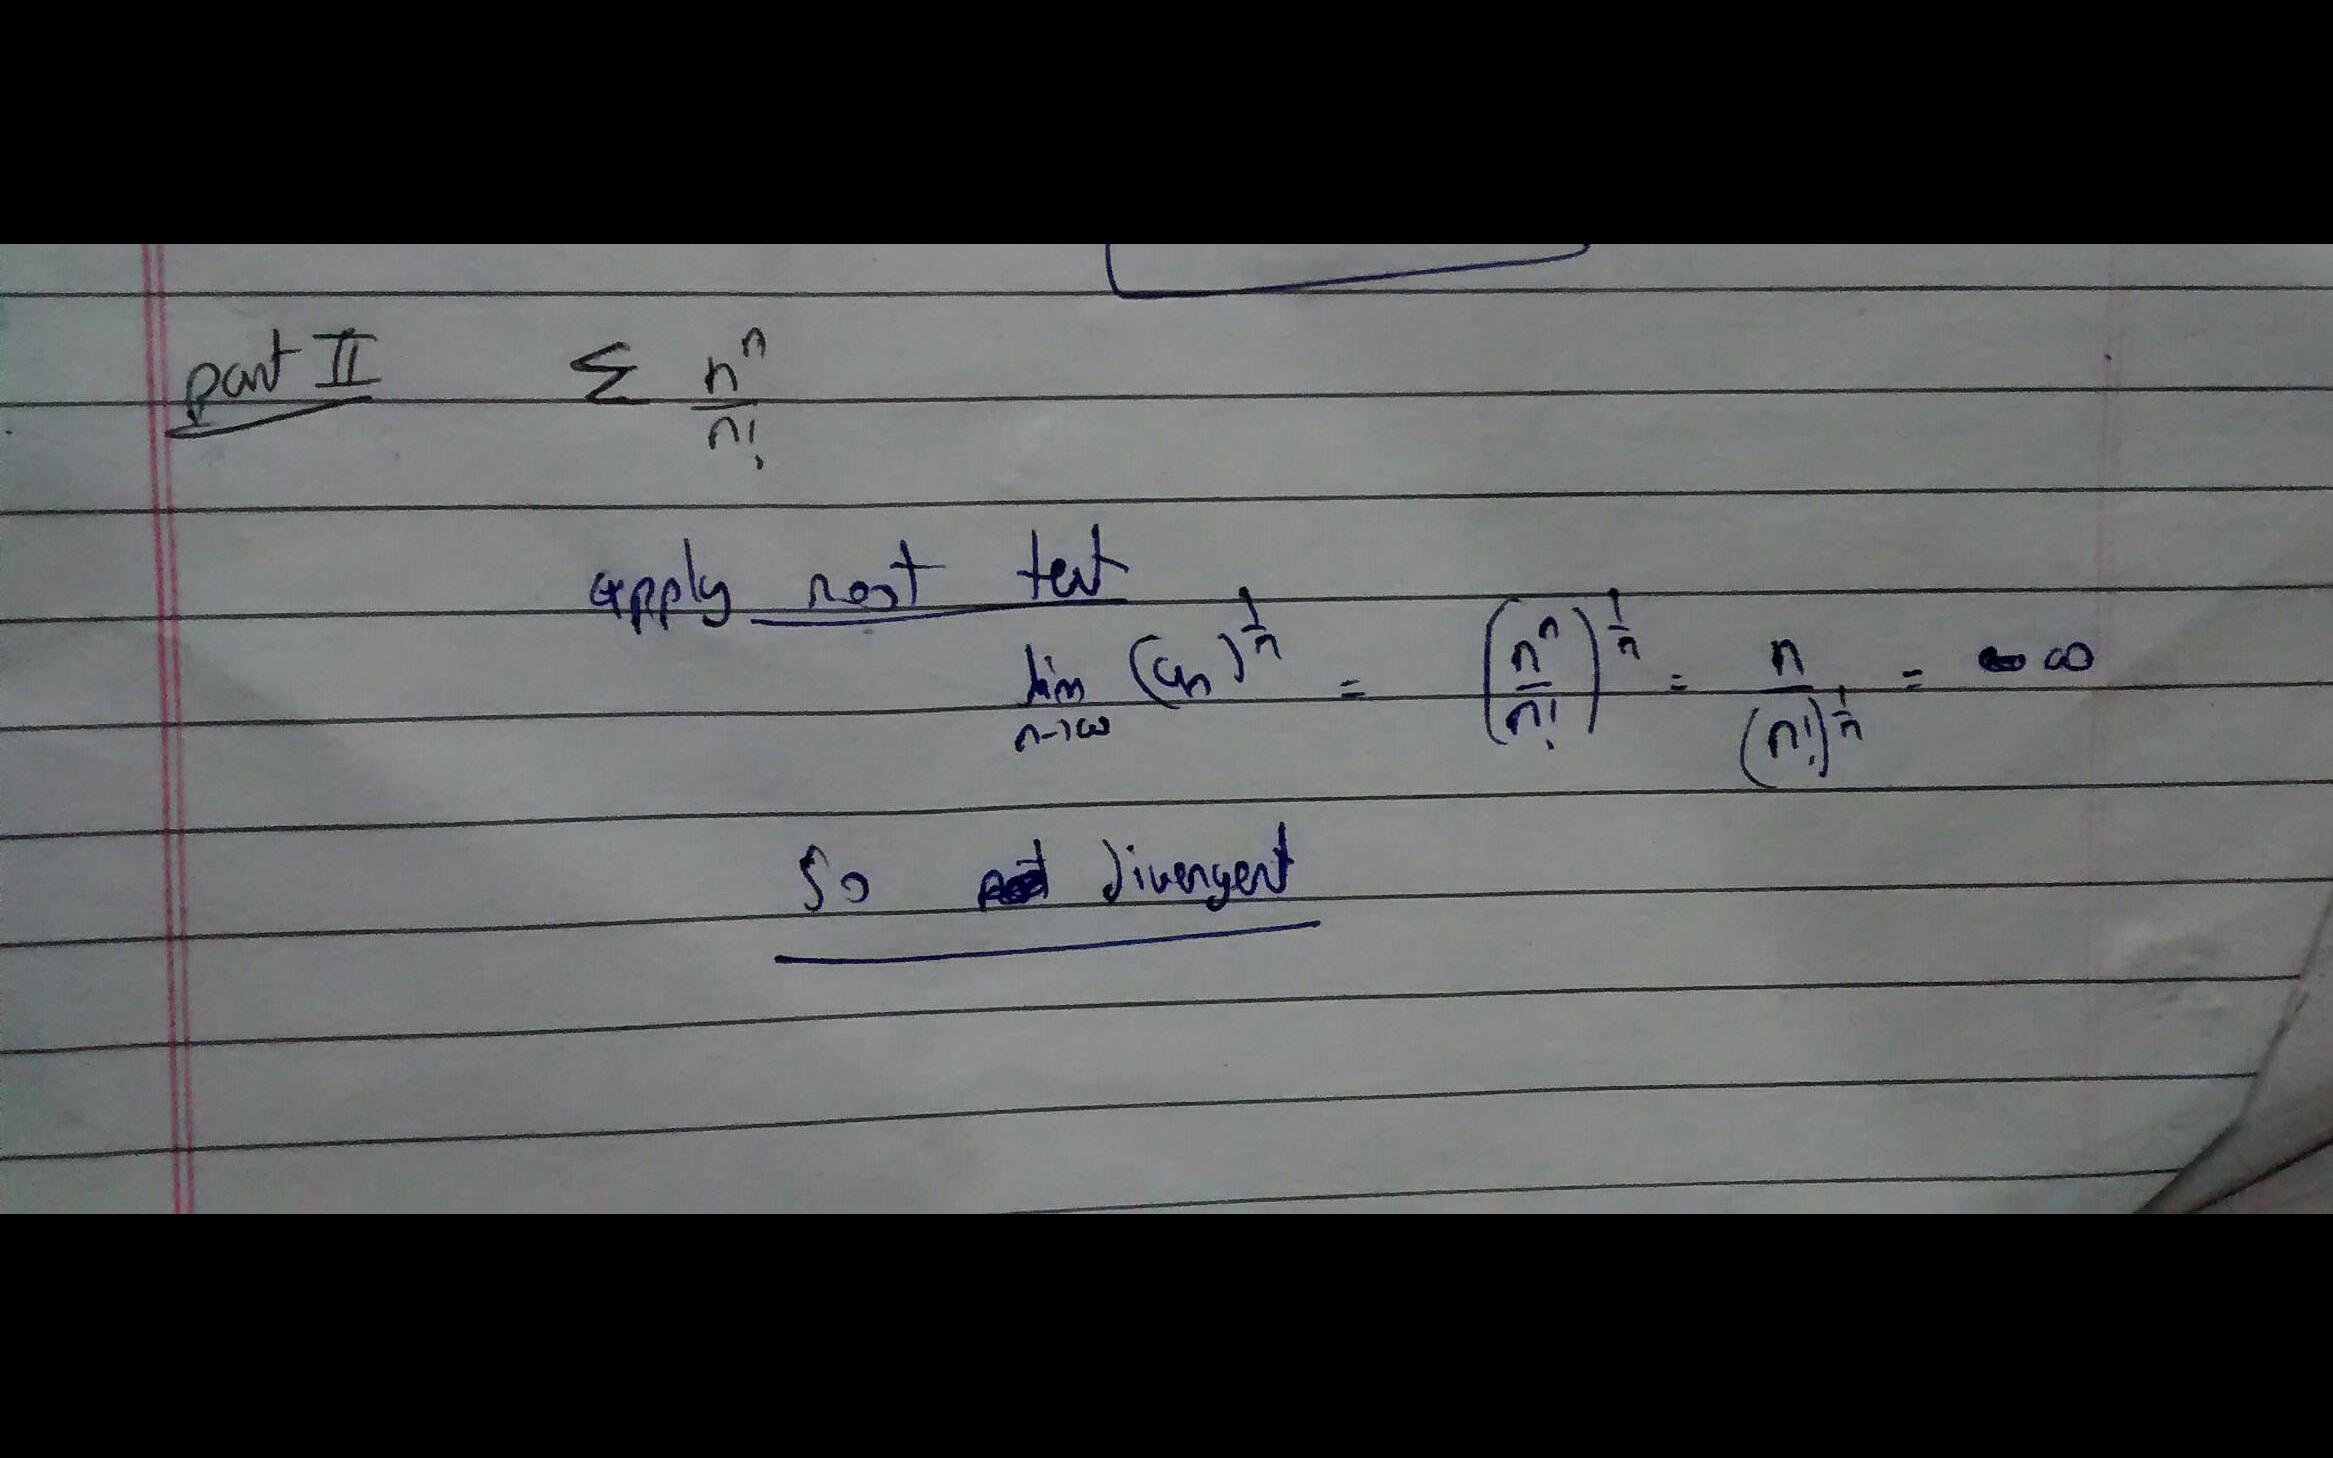 part II Σ n^n / n!
apply root test
lim n→∞ (an)^1/n = (n^n / n!)^1/n = n / (n!)^1/n = ∞
So divergent